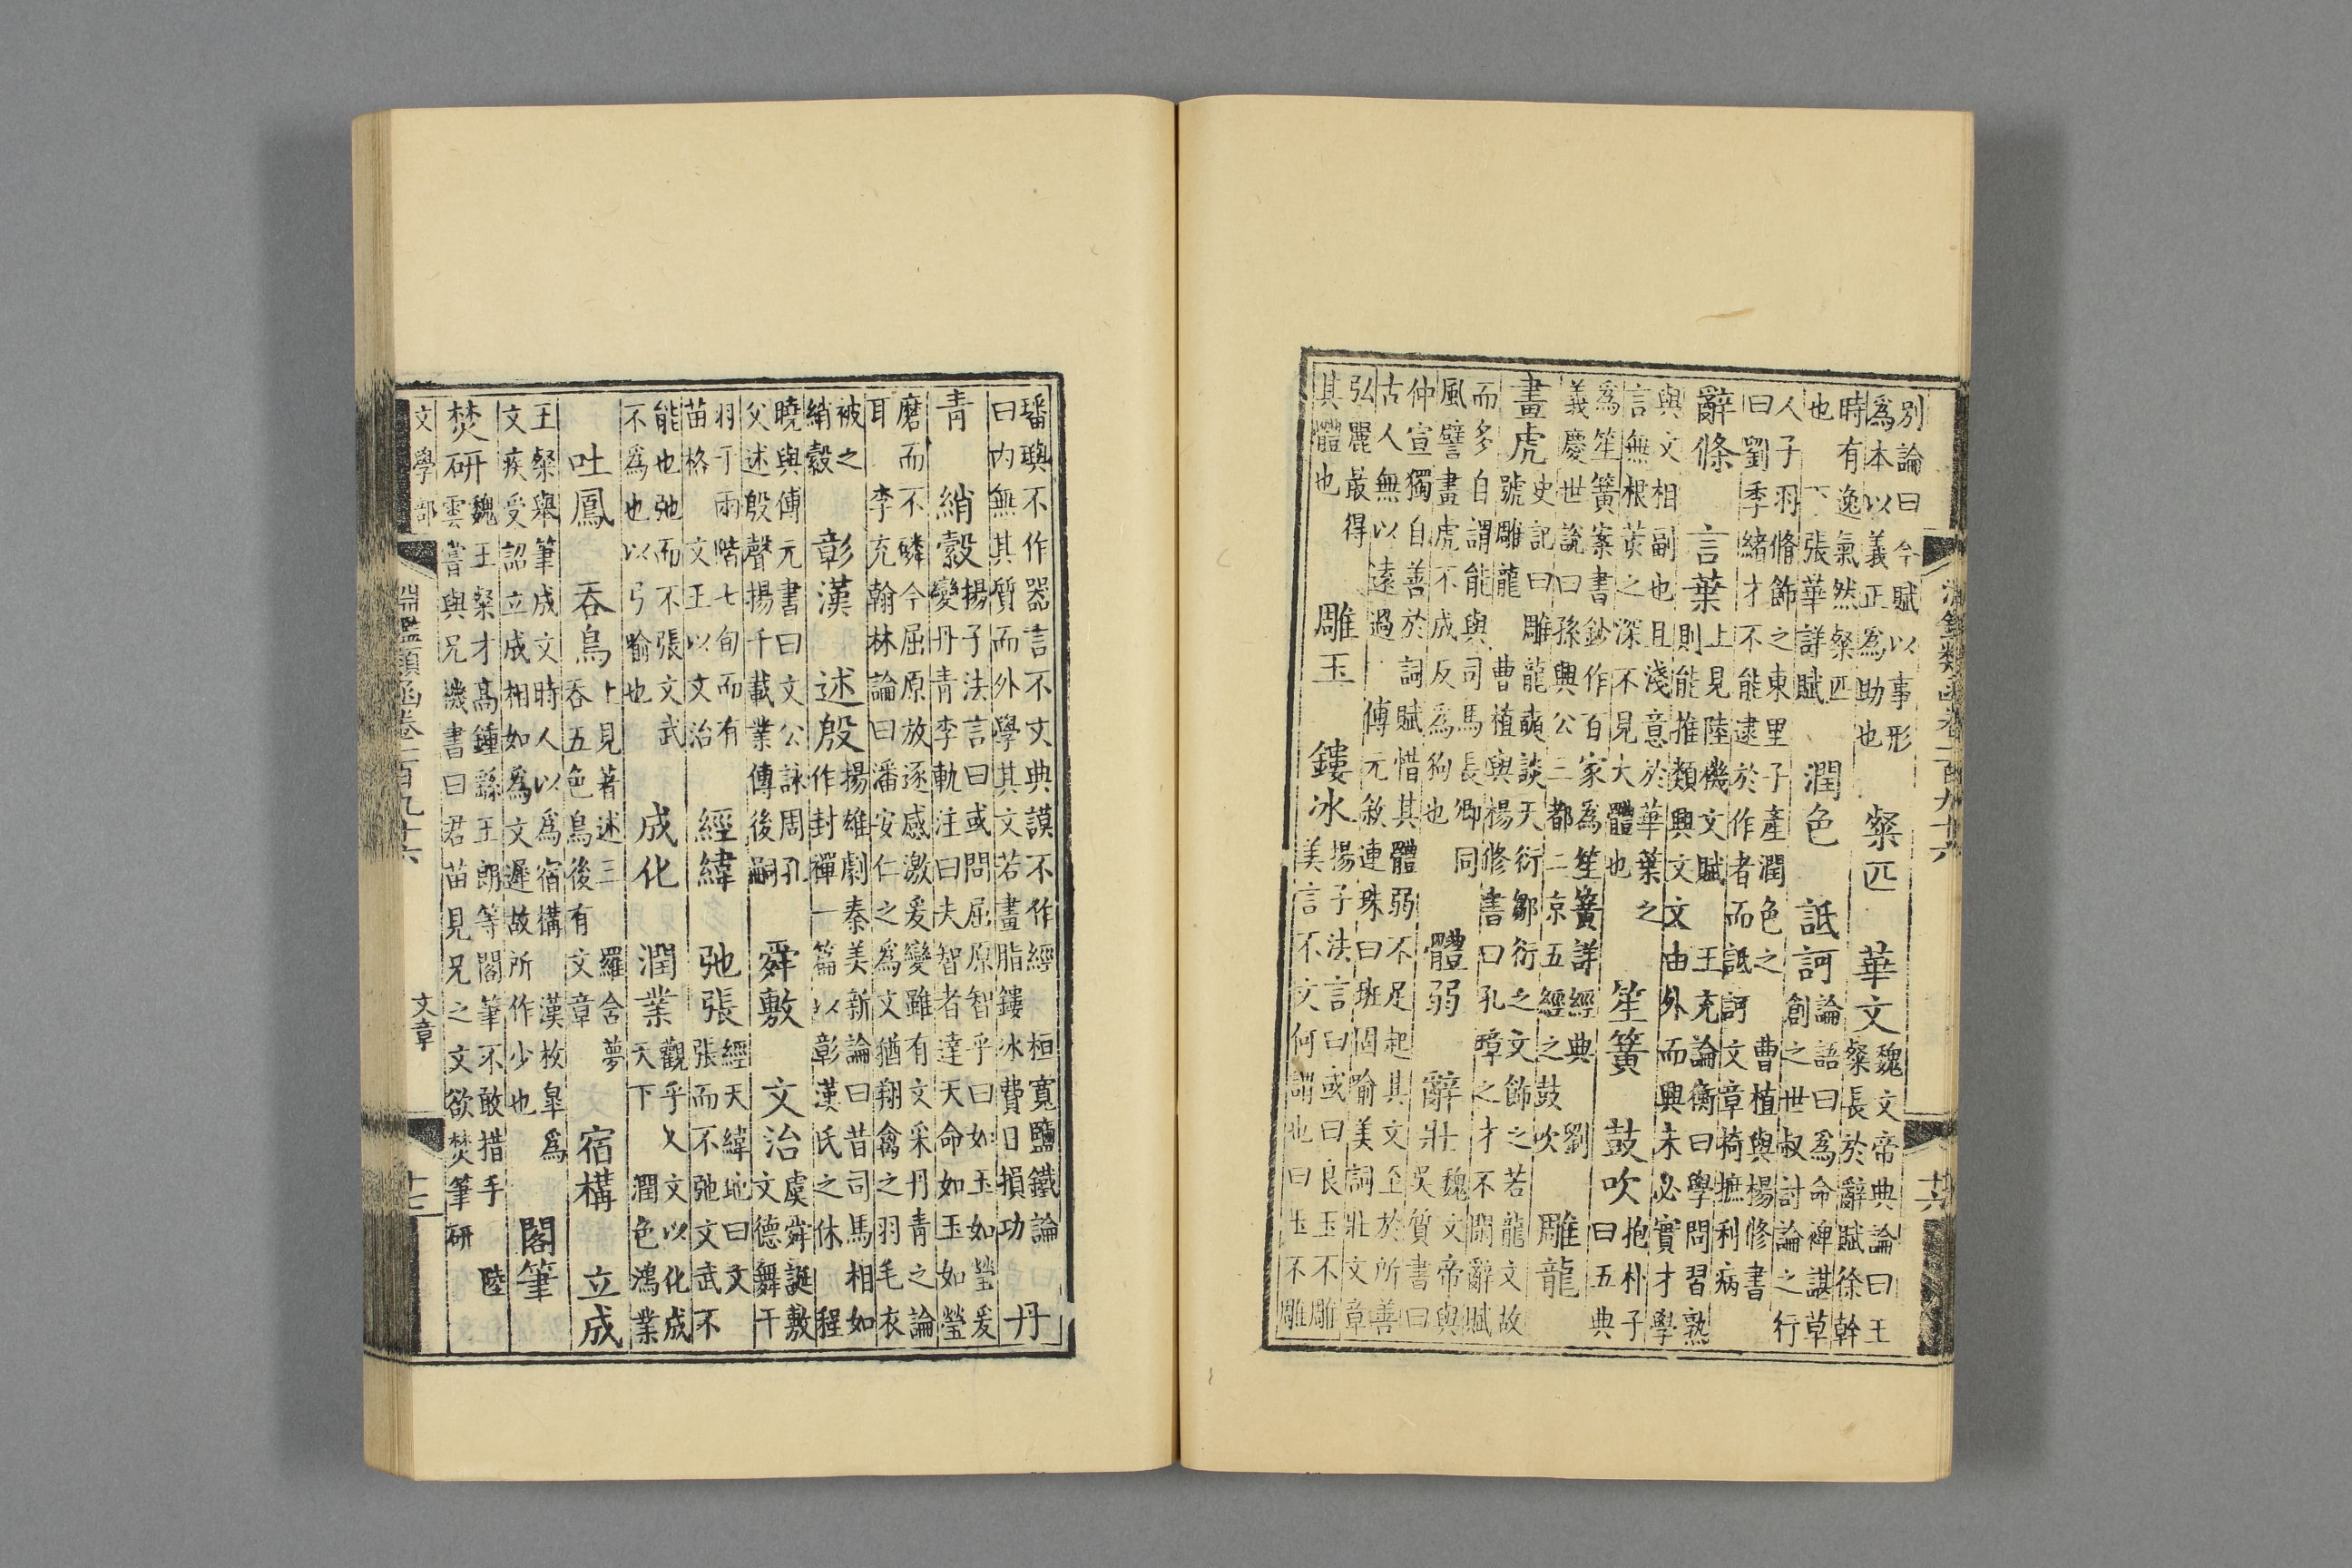 別論曰今賦以事形
為本以義正為助也
粲匹　華文
魏文帝典論曰王
粲長於辭賦徐幹
時有逸氣然粲匹
也　下張華詳賦
潤色　詆訶
論語曰為命裨諶草
創之世叔討論之行
人子羽脩飾之東里子產潤色之　曹植與楊修書
曰劉季緒才不能逮於作者而詆訶文章掎摭利病
辭條　言葉
上見陸機文賦　王充論衡曰學問習熟
則能推類興文文由外而興未必實才學
與文相副也且淺意於華葉之
言無根荄之深不見大體也
笙簧　鼓吹
抱朴子
曰五典
為笙簧案書鈔作百家為笙簧詳經典　劉
義慶世說曰孫興公三都二京五經之鼓吹
雕龍
畫虎
史記曰雕龍奭談天衍鄒衍之文飾之若龍文故
號雕龍　曹植與楊修書曰孔璋之才不閑辭賦
而多自謂能與司馬長卿同
風譬畫虎不成反為狗也
體弱　辭壯
魏文帝與
吳質書曰
仲宣獨自善於詞賦惜其體弱不足起其文至於所善
古人無以遠過　傅元敘連珠曰班固喻美詞壯文章
弘麗最得
其體也
雕玉　鏤冰
揚子法言曰或曰良玉不雕
美言不文何謂也曰玉不雕
璠璵不作器言不文典謨不作經　桓寬鹽鐵論
曰內無其質而外學其文若畫脂鏤冰費日損功
丹
青　綃縠
揚子法言曰或問屈原智乎曰如玉如瑩爰
變丹青李軌注曰夫智者達天命如玉如瑩
磨而不磷今屈原放逐感激爰變雖有文采丹青之論
耳　李充翰林論曰潘安仁之為文猶翔禽之羽毛衣
被之
綃縠
彰漢　述殷
揚雄劇秦美新論曰昔司馬相如
作封禪一篇以彰漢氏之休　程
曉與傅元書曰文公詠周孔
父述殷聲揚千載業傳後嗣
舜敷　文治
虞舜誕敷
文德舞干
羽于兩階七旬而有
苗格　文王以文治
經緯　弛張
經天緯地曰文
張而不弛文武不
能也弛而不張文武
不為也以弓喻也
成化　潤業
觀乎人文以化成
天下　潤色鴻業
吐鳳　吞鳥
上見著述三　羅含夢
吞五色鳥後有文章
宿構　立成
王粲舉筆成文時人以為宿構　漢枚皋為
文疾受詔立成相如為文遲故所作少也
閣筆
焚研
魏王粲才高鍾繇王朗等閣筆不敢措手　陸
雲嘗與兄機書曰君苗見兄之文欲焚筆研
文學部
文章
十七